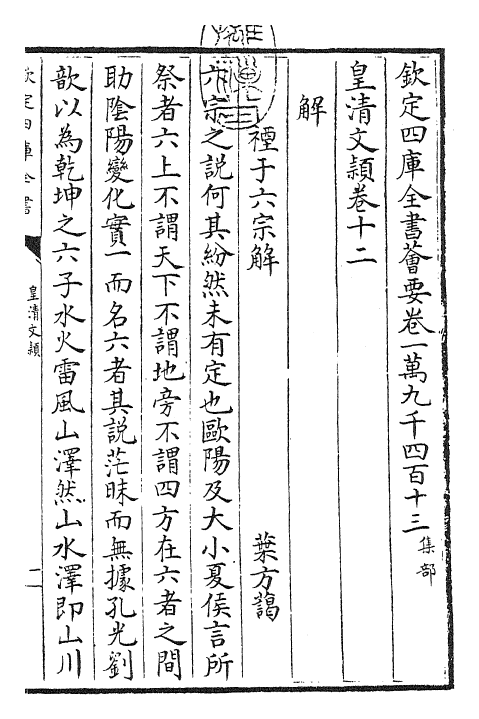 欽定四庫全書薈要卷一萬九千四百十三集部
皇清文穎卷十二
解
禋于六宗解 葉方藹
六宗之說何其紛然未有定也歐陽及大小夏侯言所
祭者六上不謂天下不謂地旁不謂四方在六者之間
助陰陽變化實一而名六者其說茫昧而無據孔光劉
歆以為乾坤之六子水火雷風山澤然山水澤即山川
欽定四庫全書
皇清文穎
一